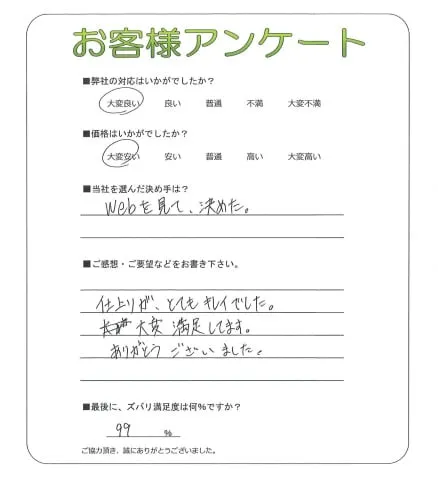 お客様アンケート
■弊社の対応はいかがでしたか？
大変良い 良い 普通 不満 大変不満
■価格はいかがでしたか？
大変安い 安い 普通 高い 大変高い
■当社を選んだ決め手は？
Webを見て、決めた。
■ご感想・ご要望などをお書き下さい。
仕上りが、とてもキレイでした。
大変 満足してます。
ありがとう ございました。
■最後に、ズバリ満足度は何%ですか？
99 %
ご協力頂き、誠にありがとうございました。